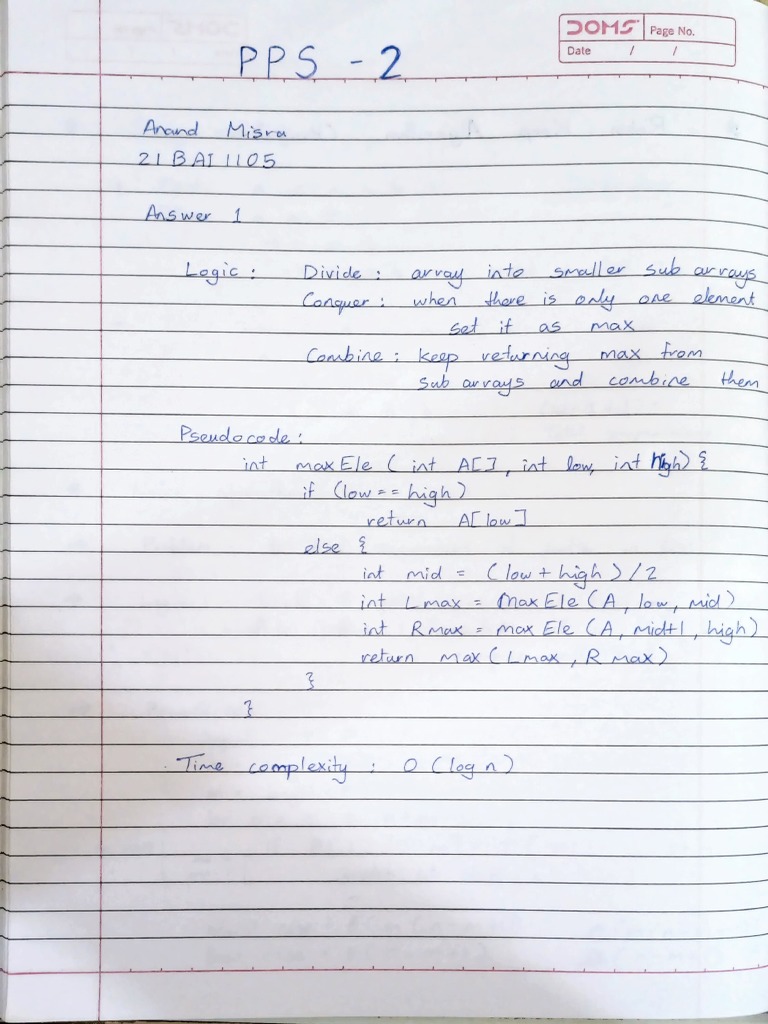 PPS - 2
DOMS Page No.
Date / /
Anand Misra
21BAI1105
Answer 1
Logic : Divide : array into smaller sub arrays
Conquer : when there is only one element
set it as max
Combine : keep returning max from
sub arrays and combine them
Pseudocode :
int maxEle ( int A[] , int low, int high) {
if (low == high)
return A[low]
else {
int mid = (low + high) / 2
int Lmax = maxEle (A , low , mid)
int Rmax = maxEle (A, mid+1 , high)
return max ( Lmax , Rmax)
}
}
Time complexity : O (log n)